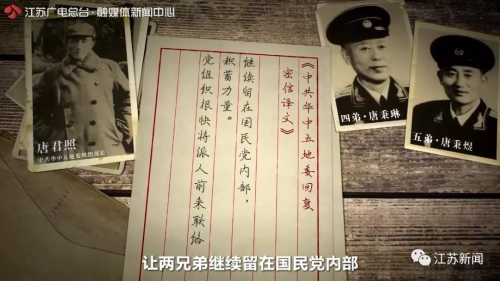 江苏广电总台·融媒体新闻中心
唐君照
中共华中五地委
《中共华中五地委回复
密信译文》
继续留在国民党内部，
积蓄力量。
党组织很快将派人前来联络
四弟·唐秉琳
五弟·唐秉煜
让两兄弟继续留在国民党内部
江苏新闻